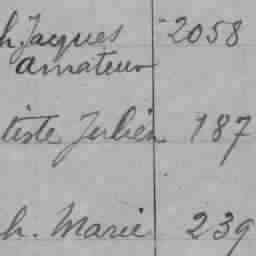 h. Jacques 2058
amateur
tiste Julien 187
h. Marie 239